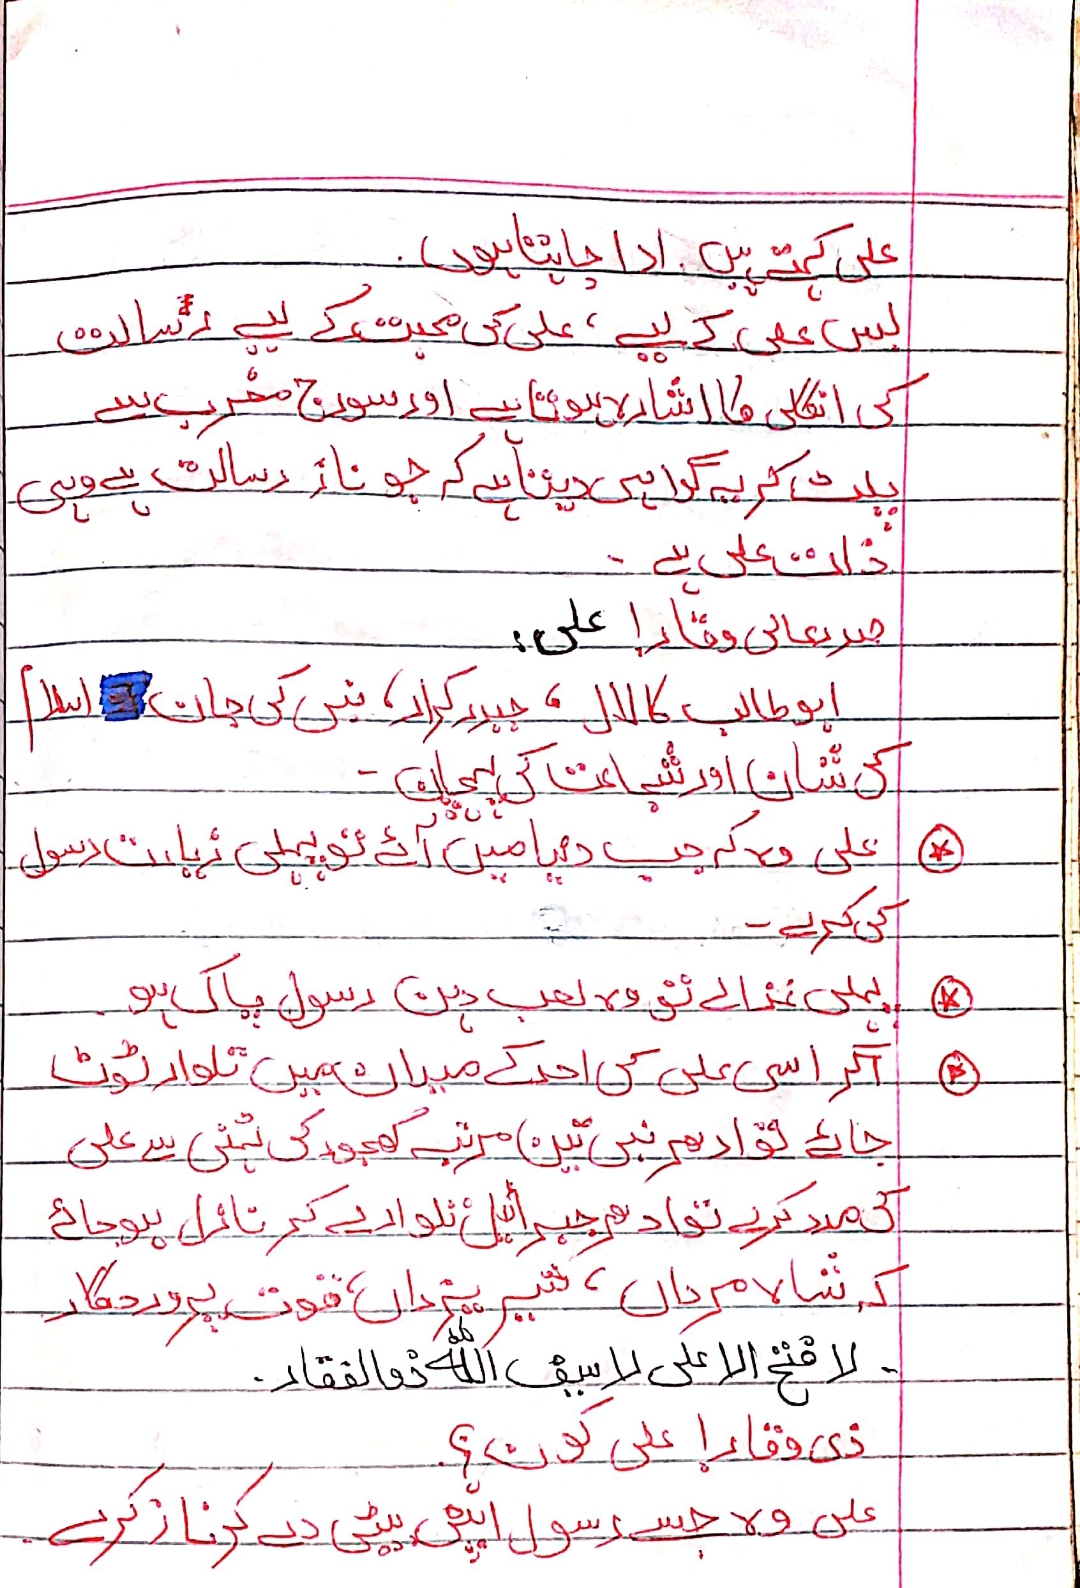 علی کہتے ہیں۔ ادا چاہتا ہوں۔
بس علی کے لیے، علی کی محبت کے لیے رسالت
کی انگلی کا اشارہ ہوتا ہے اور سورج مغرب سے
پلٹ کر یہ گواہی دیتا ہے کہ جو ناز رسالت ہے وہی
ذات علی ہے۔
صدر عالی وقار! علی:
ابو طالب کا لال، حیدر کرار، نبی کی جان اسلام
کی شان اور شجاعت کی پہچان۔
علی وہ کہ جب دنیا میں آئے تو پہلی زیارت رسول
کی کرے۔
پہلی غذا لے تو وہ لعب دہن رسول پاک ہو۔
اگر اسی علی کی احد کے میدان میں تلوار ٹوٹ
جائے تو ادھر نبی تین مرتبہ کھجور کی ٹہنی سے علی
کی مدد کرے تو ادھر جبرائیل تلوار لے کر نازل ہو جائے
کہ شاہ مرداں، شیر یزداں، قوت پروردگار
۔ لا فتح الا علی لا سیف اللہ ذوالفقار۔
ذی وقار! علی کون؟
علی وہ جسے رسول اپنی بیٹی دے کر ناز کرے۔